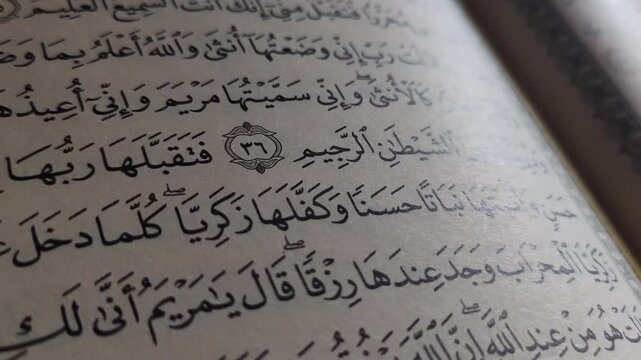 فَتَقَبَّلْ مِنِّىٓ إِنَّكَ أَنتَ السَّمِيعُ الْعَلِيمُ
رَبِّ إِنِّى وَضَعْتُهَآ أُنثَىٰ وَاللَّهُ أَعْلَمُ بِمَا
كَالْأُنثَىٰ ۖ وَإِنِّى سَمَّيْتُهَا مَرْيَمَ وَإِنِّىٓ أُعِيذُهَا
الشَّيْطَٰنِ الرَّجِيمِ ٣٦ فَتَقَبَّلَهَا رَبُّهَا
حَسَنٍ وَأَنۢبَتَهَا نَبَاتًا حَسَنًا وَكَفَّلَهَا زَكَرِيَّا ۖ كُلَّمَا دَخَلَ
زَكَرِيَّا الْمِحْرَابَ وَجَدَ عِندَهَا رِزْقًا ۖ قَالَ يَٰمَرْيَمُ أَنَّىٰ لَكِ
هُوَ مِنْ عِندِ اللَّهِ ۖ إِنَّ اللَّهَ